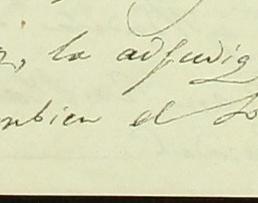 , la adjudiq
mbien el